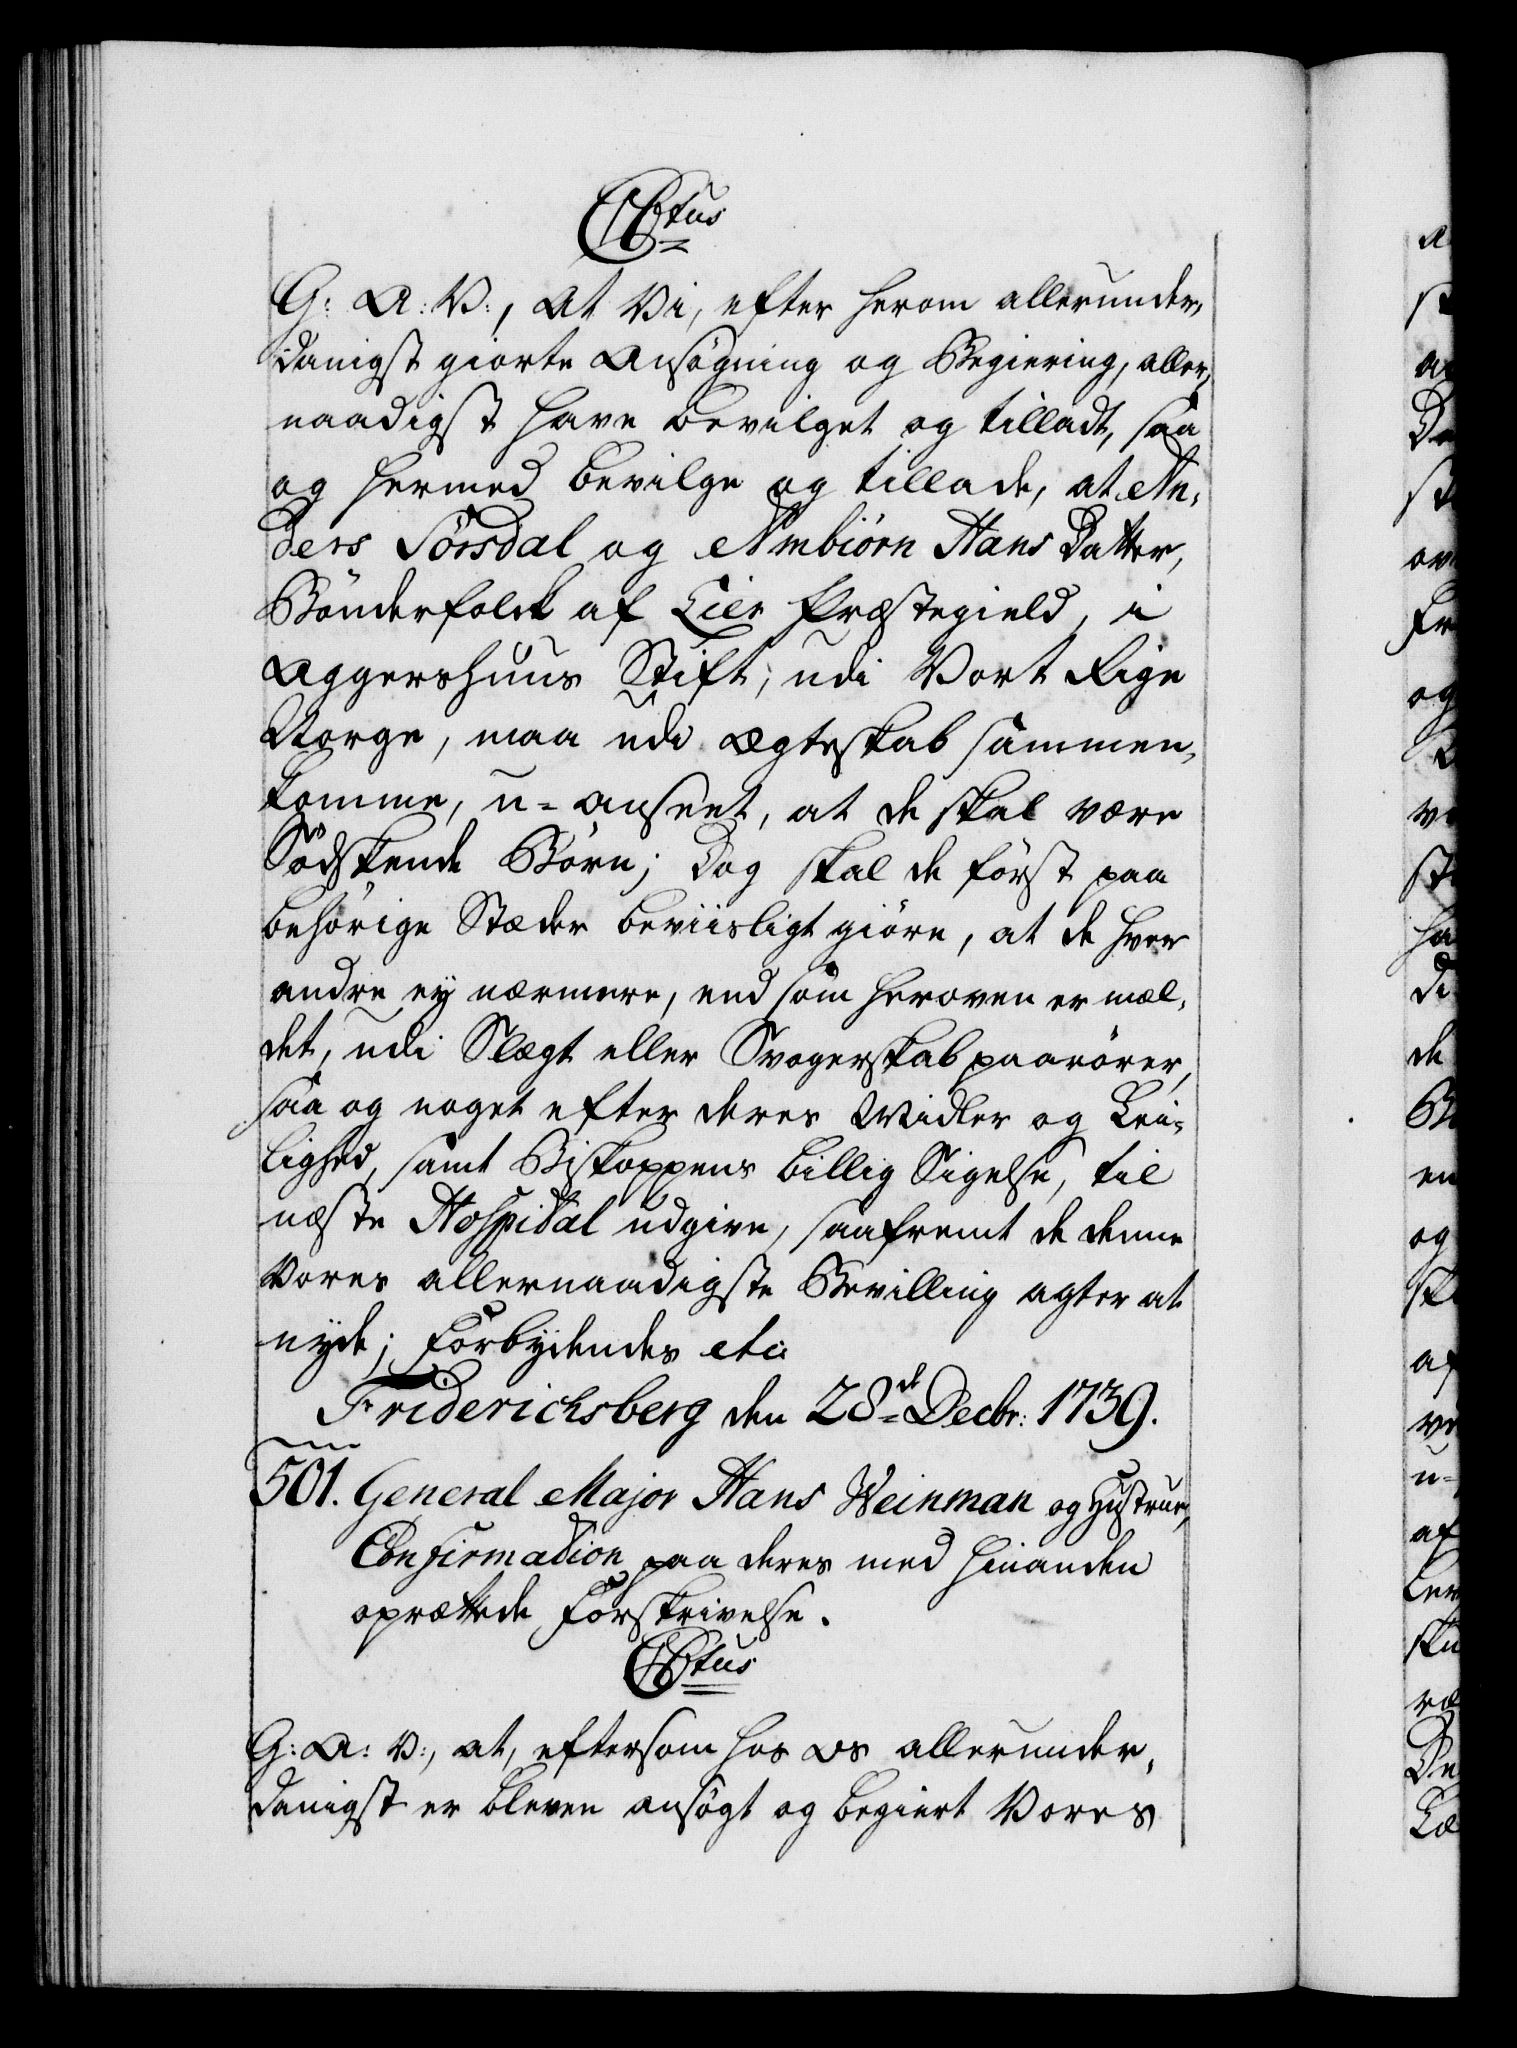 CStus
G: A: V:, At Vi, efter herom allerunder,
danigst giorte Ansögning og Begiering, aller,
naadigst have bevilget og tilladt, saa
og hermed bevilge og tillade, at An,
ders Sörsdal og Armbiörn Hans Datter,
Bönderfolck af Lier Præstegield, i
Aggershuus Stift, udi Vort Rige
Norge, maa udi Ægteskab sammen,
komme, u-anseet, at de skal være
Södskende Börn; Dog skal de först paa
behörige Stæder beviisligt giöre, at de hver
andre ey nærmere, end som heroven er mel,
det, udi Slægt eller Svogerskab paarörer,
saa og noget efter deres Midler og Lei,
lighed, samt Biskoppens billig Sigelse, til
næste Hospital udgive, saafremt de denne
Vores allernaadigste Bevilling agter at
nyde; Forbydendes etc
Friderichsberg den 28de Decbr: 1739.
501. General Major Hans Weinman og Hustrue,
Confirmation paa deres med hinanden
oprættede Forskrivelse.
CStus
G: A: V:, at, eftersom hos os allerunder,
danigst er bleven ansögt og begiert Vores